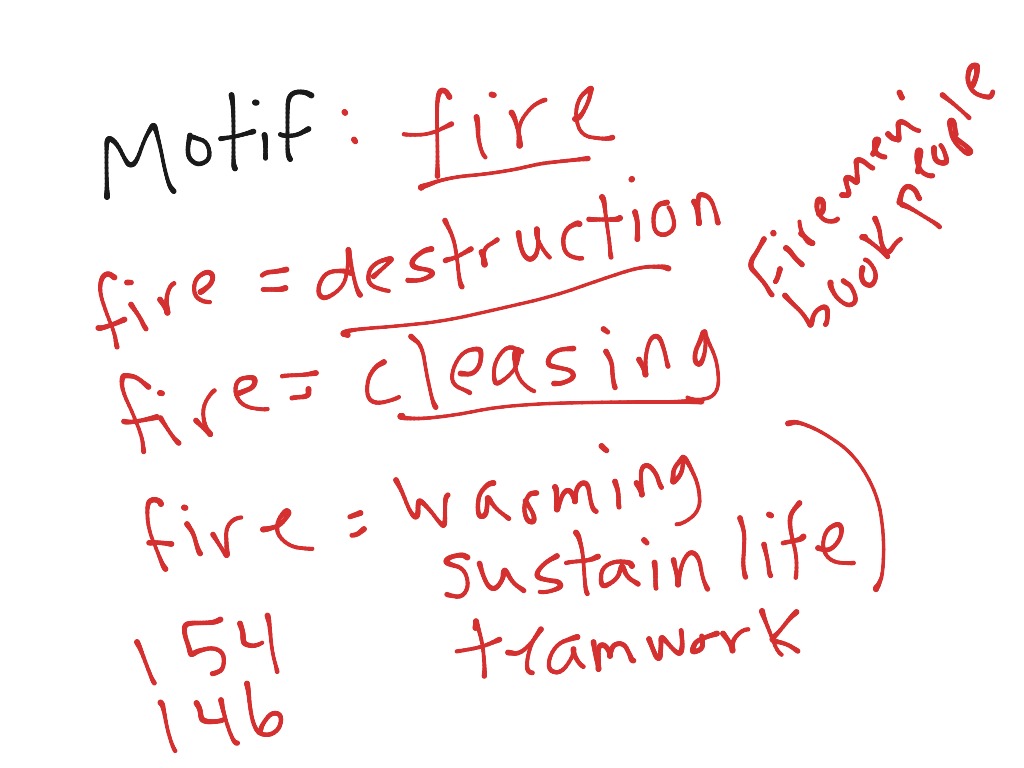 Motif: fire
Firemen
book people
fire = destruction
fire = cleasing
fire = warming
sustain life
teamwork
154
146